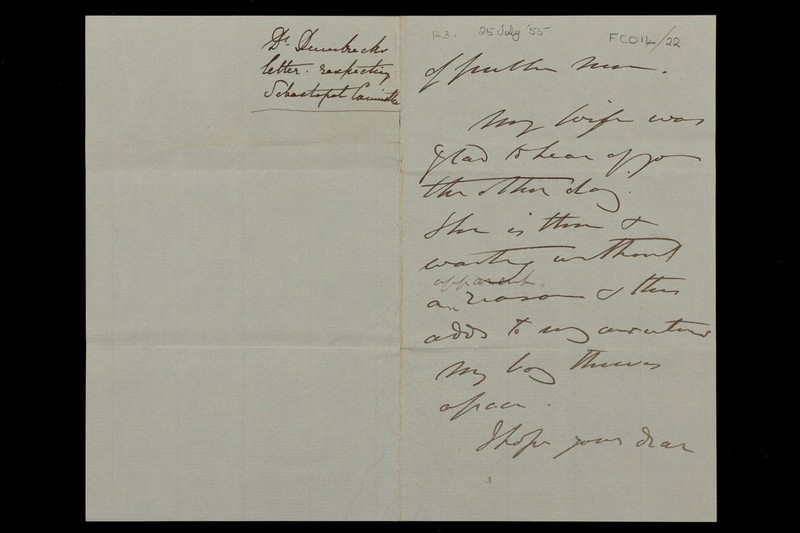 Dr. Dumbreck's
letter. respecting
Sebastopol Committee
p.3. 25 July '55
FCO14/22
of further news.
My wife was
glad to hear of you
the other day.
She is thin &
wasting without
apparent.
a reason & this
adds to my anxieties
My boy thrives
apace.
I hope your dear